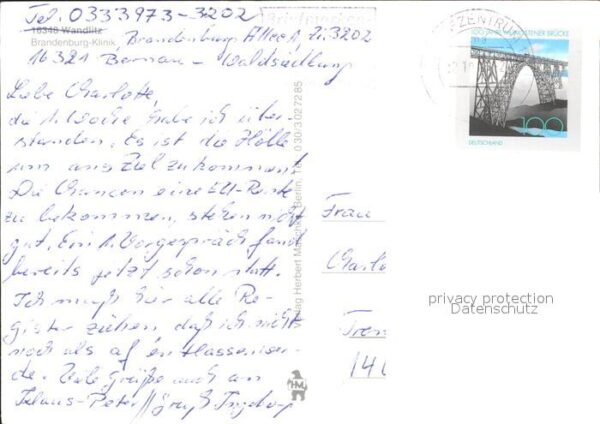 Tel. 0333973-3202
Briefmarken
16348 Wandlitz
Brandenburg-Klinik
Brandenburg Allee 1, Zi. 3202
16321 Bernau - Waldsiedlung
Liebe Charlotte,
die 1. Woche habe ich über-
standen. Es ist die Hölle
um ans Ziel zu kommen.
Die Chancen eine EU-Rente
zu bekommen, stehen nicht
gut. Ein 1. Vorgespräch fand
bereits jetzt schon statt.
Ich muß hier alle Re-
gister ziehen, daß ich nicht
noch als
de. Viele Grüße auch an
Klaus-Peter // Gruß Ingeborg
Verlag Herbert Berlin, Tel. 030/302 72 85
HM
ZENTRUM
100 JAHRE MÜNGSTENER BRÜCKE
100
DEUTSCHLAND
Frau
Charlo
privacy protection
Datenschutz